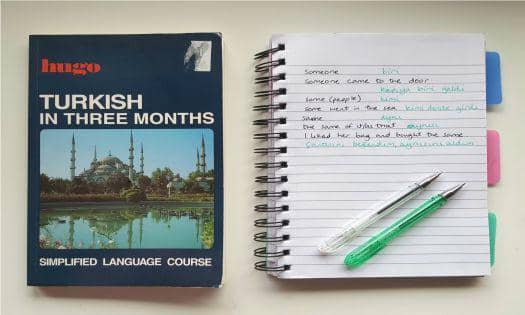 hugo
TURKISH
IN THREE MONTHS
SIMPLIFIED LANGUAGE COURSE
Someone biri
Someone came to the door
Kapıya biri geldi
Some (people) kimi
Some went in the sea kimi denize girdi
Same aynı
the same of it/as that aynısı
I liked her bag and bought the same
Çantasını beğendim, aynısını aldım